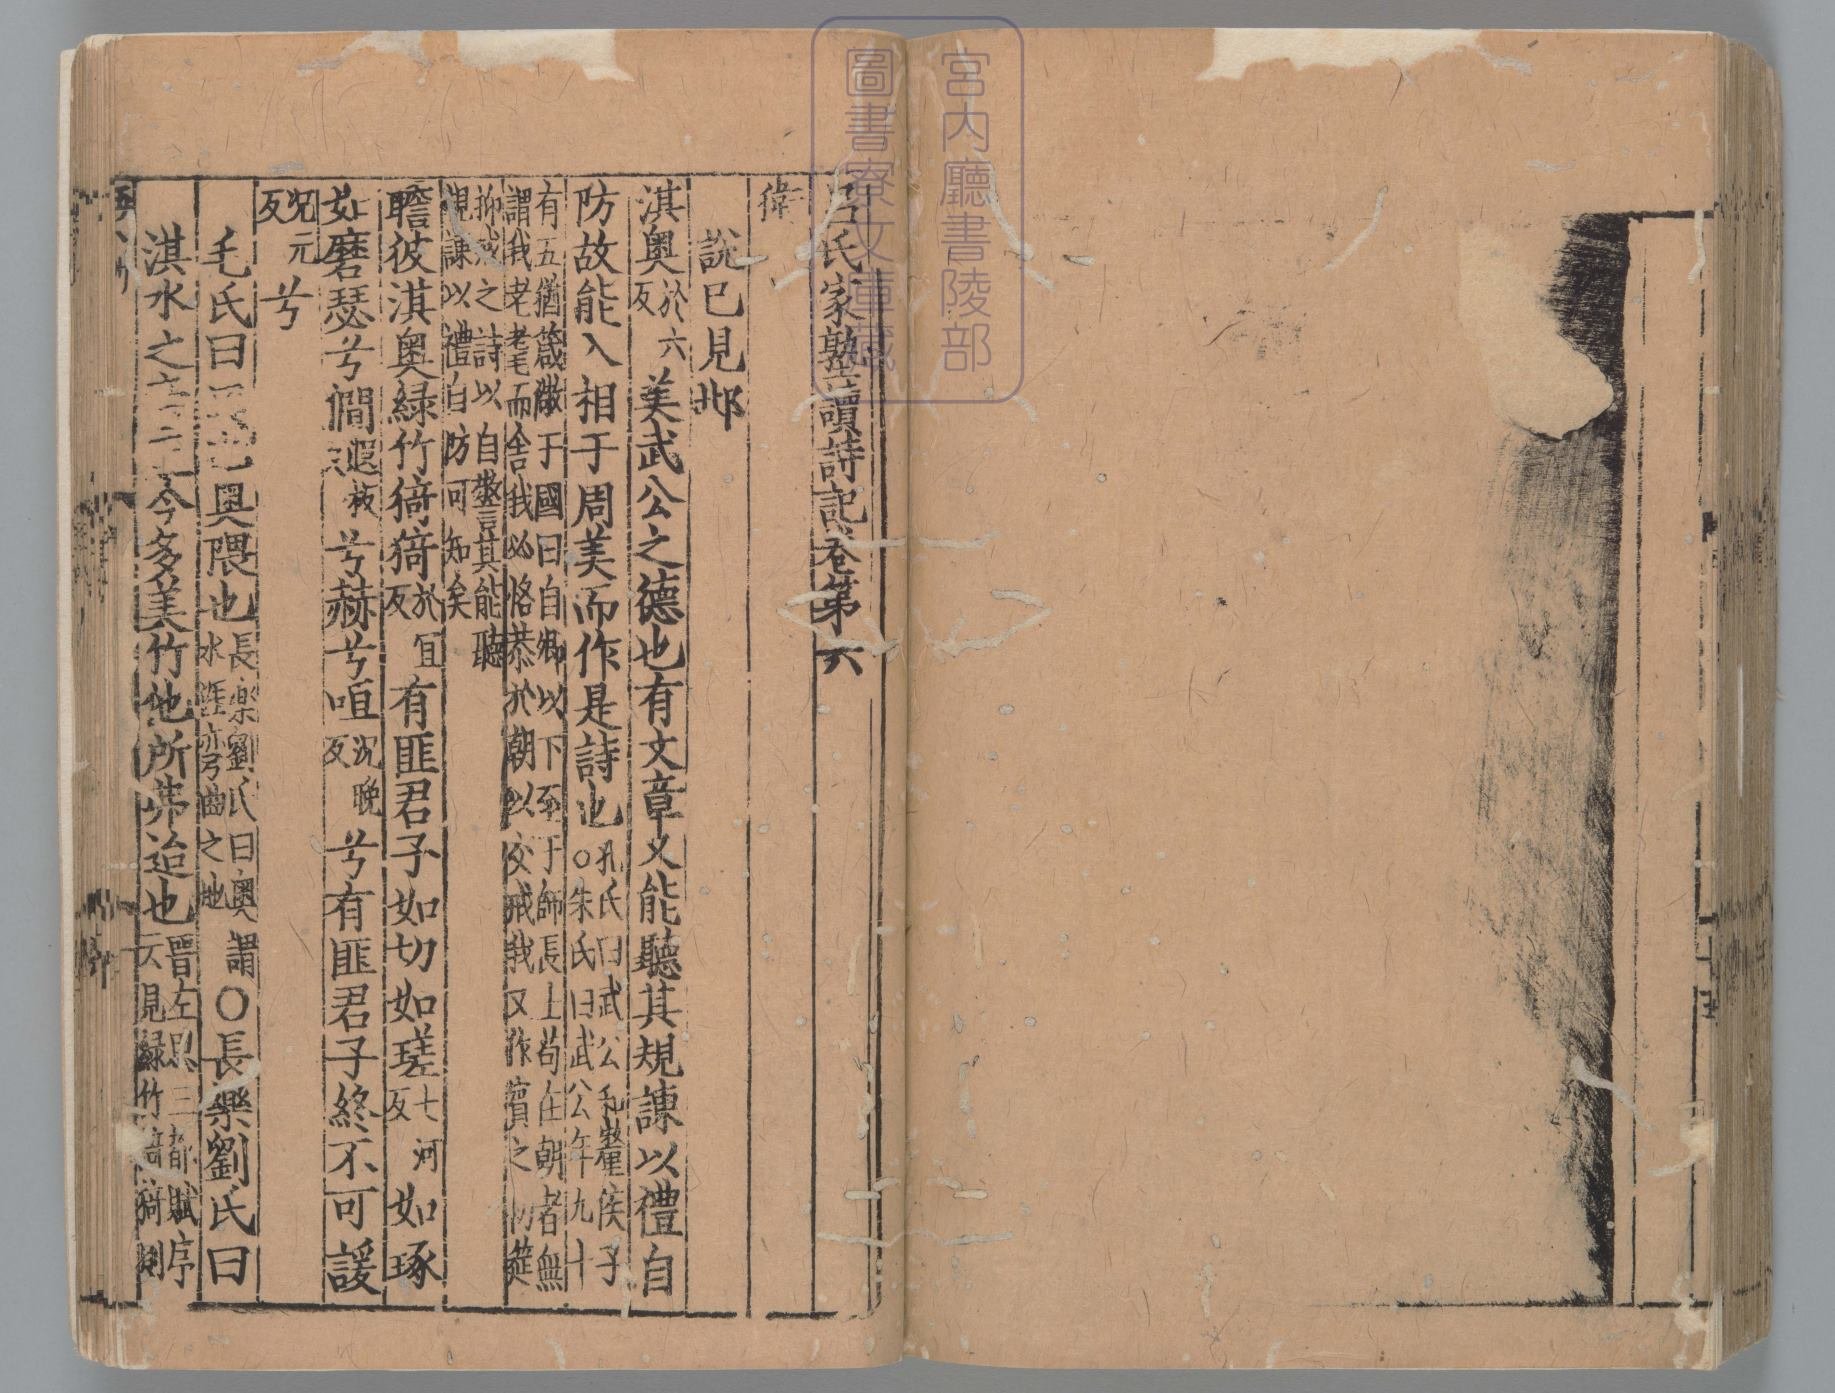 宮内廳書陵部
圖書寮文庫藏
呂氏家塾讀詩記卷第六
衛
說已見邶
淇奧於六反美武公之德也有文章又能聽其規諫以禮自
防故能入相于周美而作是詩也○孔氏曰武公和釐侯子朱氏曰武公年九十
有五猶箴儆于國曰自卿以下至于師長士苟在朝者無
謂我老耄而舍我必恪恭於朝以交戒我又作賓之初筵
抑戒之詩以自警言其能聽
規諫以禮自防可知矣
瞻彼淇奧緑竹猗猗於宜反有匪君子如切如磋七河反如琢
如磨瑟兮僩遐板反兮赫兮咺况晚反兮有匪君子終不可諼
况元反兮
毛氏曰奧隈也長樂劉氏曰奧謂水涯亦弯曲之地○長樂劉氏曰
淇水之今多美竹他所弗迨也晋左思三都賦序云見緑竹猗猗則